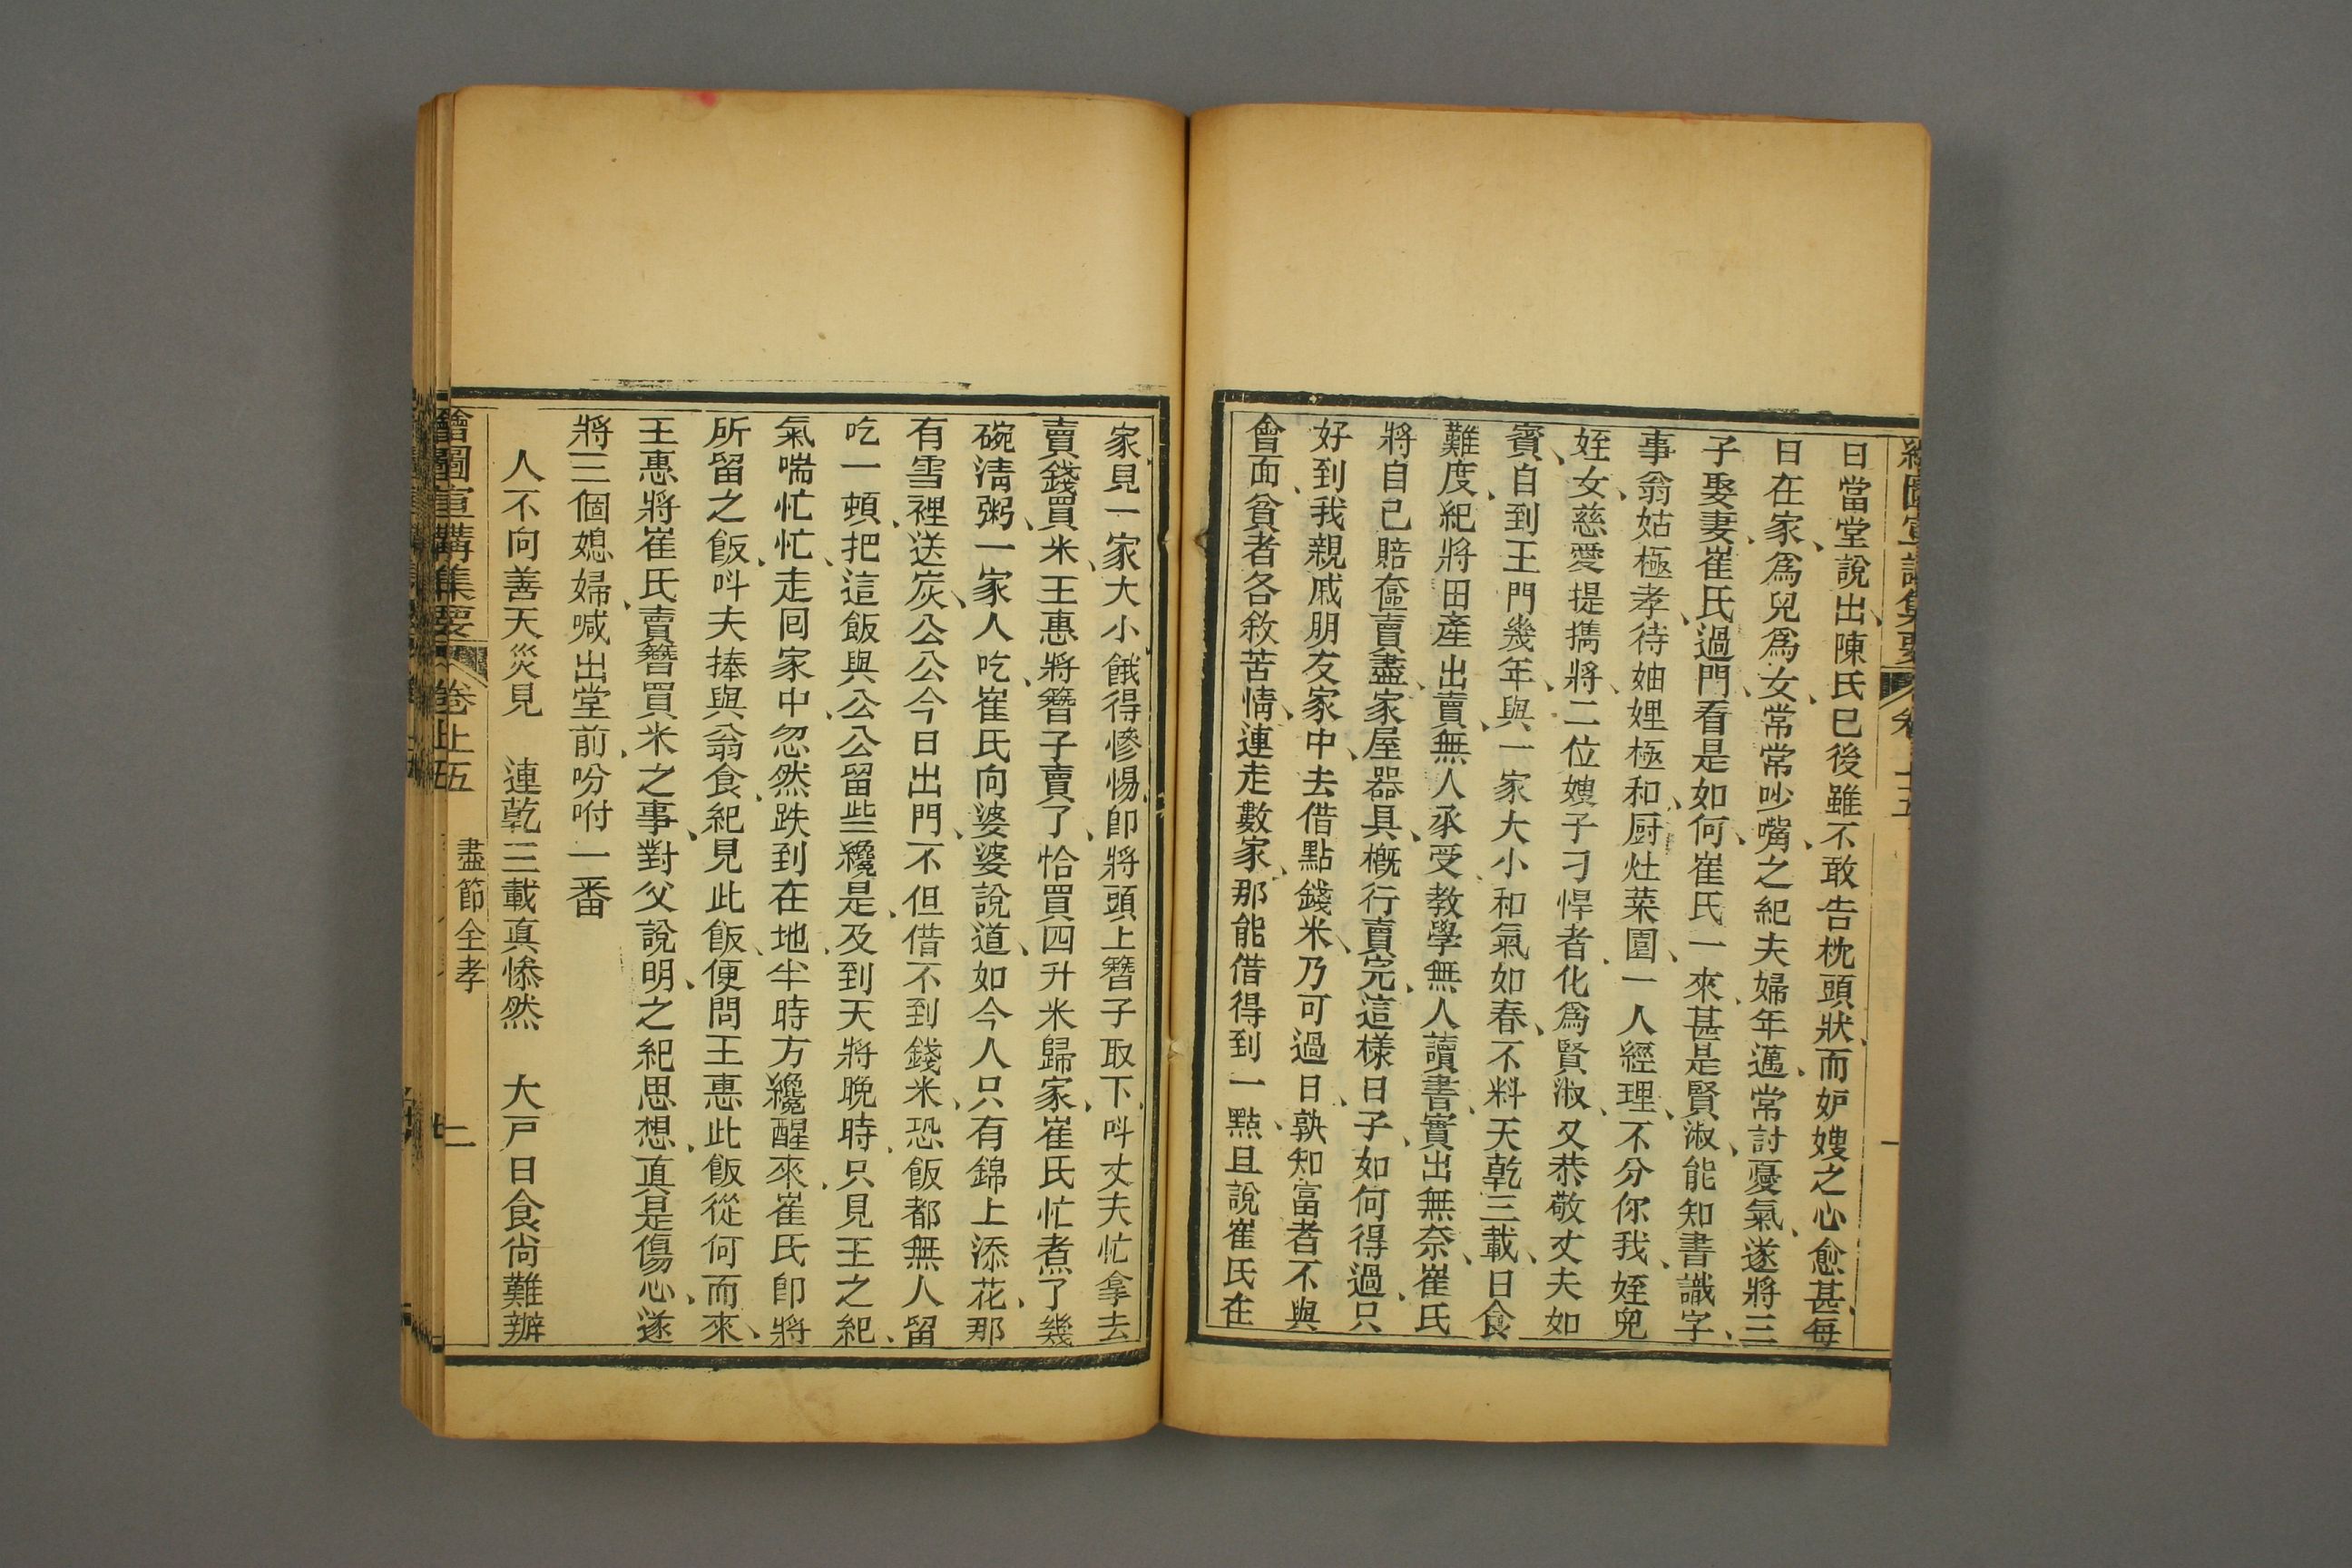 曰當堂說出、陳氏已後雖不敢告枕頭狀、而妒嫂之心愈甚、每
日在家、爲兒爲女、常常吵嘴、之紀夫婦年邁、常討憂氣、遂將三
子娶妻、崔氏過門、看是如何、崔氏一來、甚是賢淑、能知書識字、
事翁姑極孝、待妯娌極和、厨灶菜園、一人經理、不分你我、姪兒
姪女、慈愛提攜、將二位嫂子刁悍者、化爲賢淑、又恭敬丈夫如
賓、自到王門幾年、與一家大小和氣如春、不料天乾三載、日食
難度、紀將田產出賣、無人承受、教學無人讀書、實出無奈、崔氏
將自己賠奩賣盡、家屋器具、概行賣完、這樣日子、如何得過、只
好到我親戚朋友家中、去借點錢米、乃可過日、孰知富者不與
會面、貧者各敘苦情、連走數家、那能借得到一點、且說崔氏在
家、見一家大小餓得慘惕、卽將頭上簪子取下、呌丈夫忙拿去
賣錢買米、王惠將簪子賣了、恰買四升米歸家、崔氏忙煮了幾
碗淸粥、一家人吃、崔氏向婆婆說道、如今人只有錦上添花、那
有雪裡送炭、公公今日出門、不但借不到錢米、恐飯都無人留
吃一頓、把這飯與公公留些纔是、及到天將晚時、只見王之紀、
氣喘忙忙、走囘家中、忽然跌到在地、半時方纔醒來、崔氏卽將
所留之飯、呌夫捧與翁食、紀見此飯、便問王惠此飯從何而來、
王惠將崔氏賣簪買米之事、對父說明、之紀思想、眞是傷心、遂
將三個媳婦、喊出堂前、吩咐一番
人不向善天災見　連乾三載眞慘然　大戸日食尙難辦
繪圖宣講集要　卷上五　盡節全孝　二